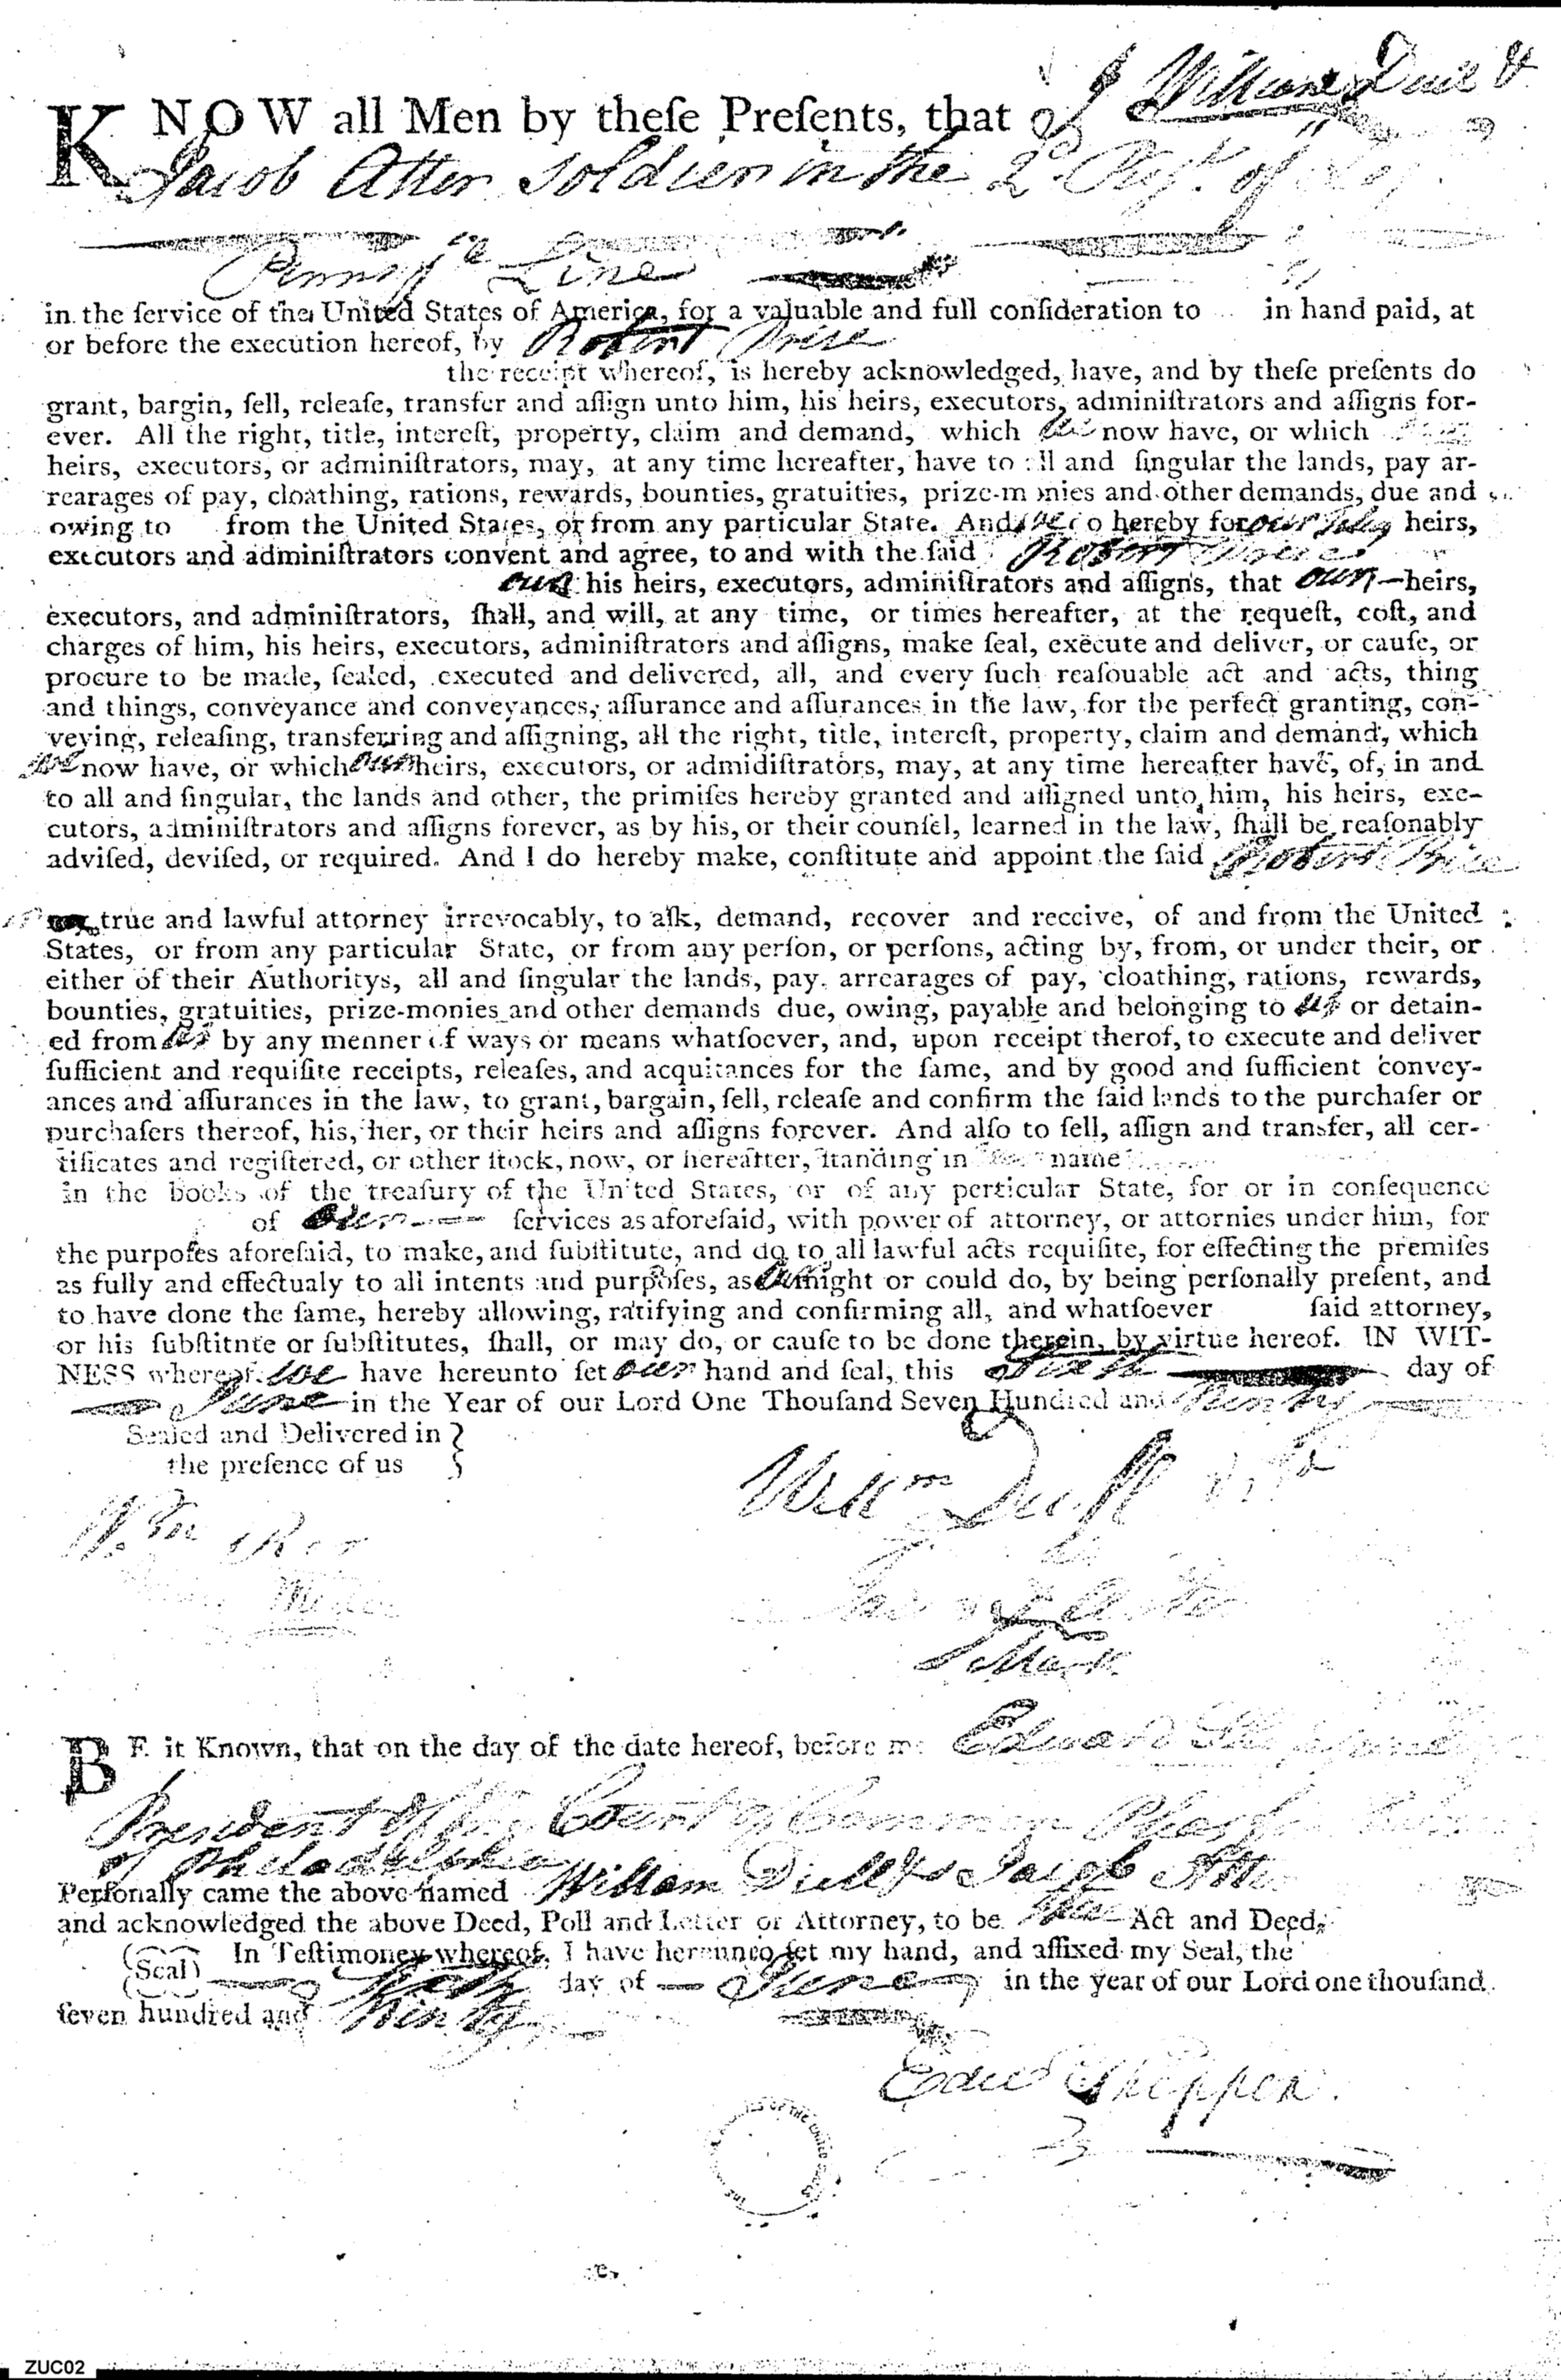 KNOW all Men by theſe Preſents, that William Duell &
Jacob Atter Soldier in the 2d Regt. of
Pennsyla Line
in the ſervice of the United States of America, for a valuable and full conſideration to in hand paid, at
or before the execution hereof, by Robert Price
the receipt whereof, is hereby acknowledged, have, and by theſe preſents do
grant, bargin, ſell, releaſe, transfer and aſſign unto him, his heirs, executors, adminiſtrators and aſſigns for-
ever. All the right, title, intereſt, property, claim and demand, which we now have, or which
heirs, executors, or adminiſtrators, may, at any time hereafter, have to all and ſingular the lands, pay ar-
rearages of pay, cloathing, rations, rewards, bounties, gratuities, prize-monies and other demands, due and
owing to from the United States, or from any particular State. And we do hereby for our heirs,
executors and adminiſtrators convent and agree, to and with the ſaid Robert Price
our his heirs, executors, adminiſtrators and aſſigns, that our heirs,
executors, and adminiſtrators, ſhall, and will, at any time, or times hereafter, at the requeſt, coſt, and
charges of him, his heirs, executors, adminiſtrators and aſſigns, make ſeal, execute and deliver, or cauſe, or
procure to be made, ſealed, executed and delivered, all, and every ſuch reaſouable act and acts, thing
and things, conveyance and conveyances, aſſurance and aſſurances in the law, for the perfect granting, con-
veying, releaſing, transferring and aſſigning, all the right, title, intereſt, property, claim and demand, which
we now have, or which our heirs, executors, or admidiſtrators, may, at any time hereafter have, of, in and
to all and ſingular, the lands and other, the primiſes hereby granted and aſſigned unto him, his heirs, exe-
cutors, adminiſtrators and aſſigns forever, as by his, or their counſel, learned in the law, ſhall be reaſonably
adviſed, deviſed, or required. And I do hereby make, conſtitute and appoint the ſaid Robert Price
true and lawful attorney irrevocably, to aſk, demand, recover and receive, of and from the United
States, or from any particular State, or from any perſon, or perſons, acting by, from, or under their, or
either of their Authoritys, all and ſingular the lands, pay, arrearages of pay, cloathing, rations, rewards,
bounties, gratuities, prize-monies and other demands due, owing, payable and belonging to us or detain-
ed from us by any menner of ways or means whatſoever, and, upon receipt therof, to execute and deliver
ſufficient and requiſite receipts, releaſes, and acquitances for the ſame, and by good and ſufficient convey-
ances and aſſurances in the law, to grant, bargain, ſell, releaſe and confirm the ſaid lands to the purchaſer or
purchaſers thereof, his, her, or their heirs and aſſigns forever. And alſo to ſell, aſſign and transfer, all cer-
tificates and regiſtered, or other ſtock, now, or hereafter, ſtanding in name
in the books of the treaſury of the United States, or of any perticular State, for or in conſequence
of our ſervices as aforeſaid, with power of attorney, or attornies under him, for
the purpoſes aforeſaid, to make, and ſubſtitute, and do to all lawful acts requiſite, for effecting the premiſes
as fully and effectualy to all intents and purpoſes, as we might or could do, by being perſonally preſent, and
to have done the ſame, hereby allowing, ratifying and confirming all, and whatſoever ſaid attorney,
or his ſubſtitnte or ſubſtitutes, ſhall, or may do, or cauſe to be done therein, by virtue hereof. IN WIT-
NESS whereof we have hereunto ſet our hand and ſeal, this Sixth day of
June in the Year of our Lord One Thouſand Seven Hundred and Ninty
Sealed and Delivered in
the preſence of us
Willm Duell
Wm
Mark
BE it Known, that on the day of the date hereof, before me Edward Shippen
President of the Court of Common Pleas
of Philadelphia
Perſonally came the above named William Duell & Jacob Atter
and acknowledged the above Deed, Poll and Letter or Attorney, to be their Act and Deed,
(Seal) In Teſtimoney whereof, I have hereunto ſet my hand, and affixed my Seal, the
Sixth day of June in the year of our Lord one thouſand
ſeven hundred and Ninty
Edwd Shippen
ZUC02